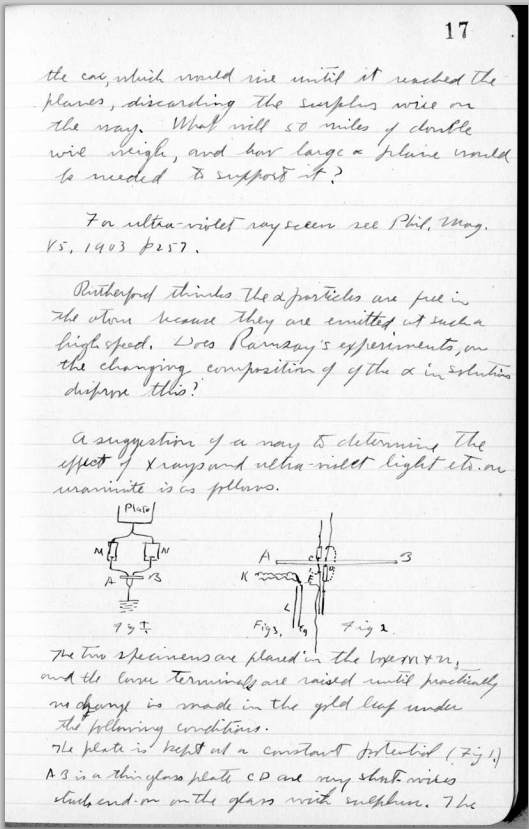 17
the car, which would rise until it reached the
planes, discarding the surplus wire on
the way. What will 50 miles of double
wire weigh, and how large a plane would
be needed to support it?
For ultra-violet ray screen see Phil. Mag.
V5, 1903 p257.
Rutherford thinks the α particles are free in
the atom because they are emitted at such a
high speed. Does Ramsay's experiments, on
the changing composition of of the α in solution
disprove this?
A suggestion of a way to determine the
effect of X rays and ultra-violet light etc. on
uraninite is as follows.
Plate
M N
A B
Fig I.
A B
K
L
Fig 3.
Fig 2.
The two specimens are placed in the boxes M + N,
and the lower terminals are raised until practically
no change is made in the gold leaf under
the following conditions.
The plate is kept at a constant potential (Fig 1.)
AB is a thin glass plate CD are very short wires
stuck end-on on the glass with sulphur. The